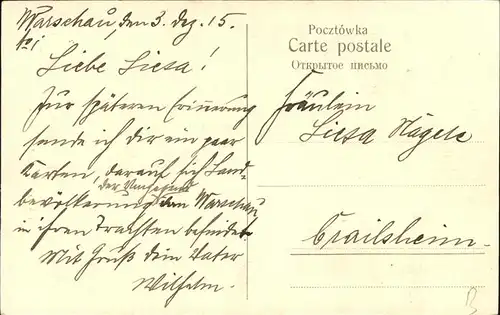 Warschau, den 3. Dez. 15.
Liebe Liesa!
Zur späteren Erinnerung
sende ich dir ein paar
Karten, darauf sich Land-
der Umgegend
bevölkerung von Warschau
in ihren Trachten befindet.
Mit Gruß dein Vater
Wilhelm.
Pocztówka
Carte postale
Открытое письмо
Fräulein
Liesa Nagele
Crailsheim.